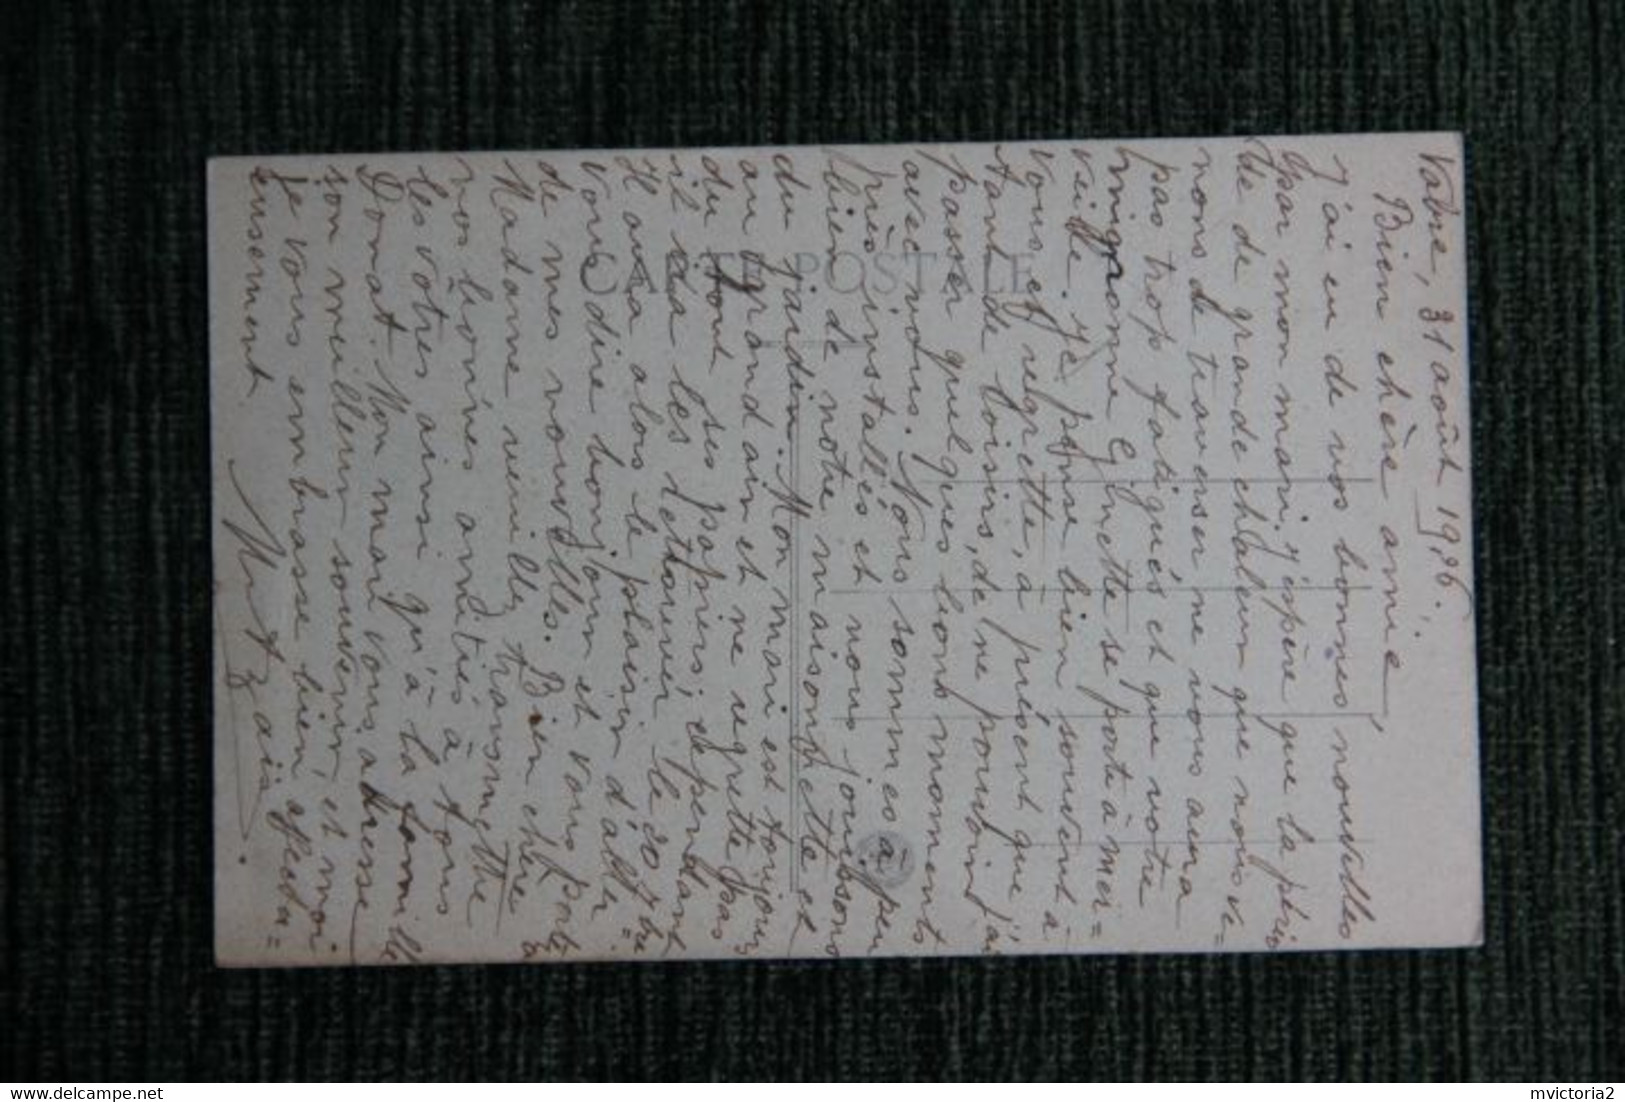 Vabre, 31 août 1926.
Bien chère amie,
J'ai eu de vos bonnes nouvelles
par mon mari. J'espère que la pério
de de grande chaleur que nous ve=
nons de traverser ne vous aura
pas trop fatiguée et que votre
mignonne Ginette se porte à mer=
veille. Je pense bien souvent à
vous et regrette, à présent que j'ai
tant de loisirs, de ne pouvoir
passer quelques bons moments
avec vous. Nous sommes à peu
près installés et nous jouissons
bien de notre maisonnette et
du jardin. Mon mari est toujours
au grand air et ne regrette pas
du tout ses papiers; cependant
il ira les retrouver le 30 7bre
Il aura alors le plaisir d'aller
vous dire bonjour et vous porter
de mes nouvelles. Bien chère
Madame veuillez transmettre
nos bonnes amitiés à tous
les vôtres ainsi qu'à la famille
Donat. Mon mari vous adresse
son meilleur souvenir et moi
je vous embrasse bien affectu=
eusement.
CARTE POSTALE
mvictoria2
Delcampe.net